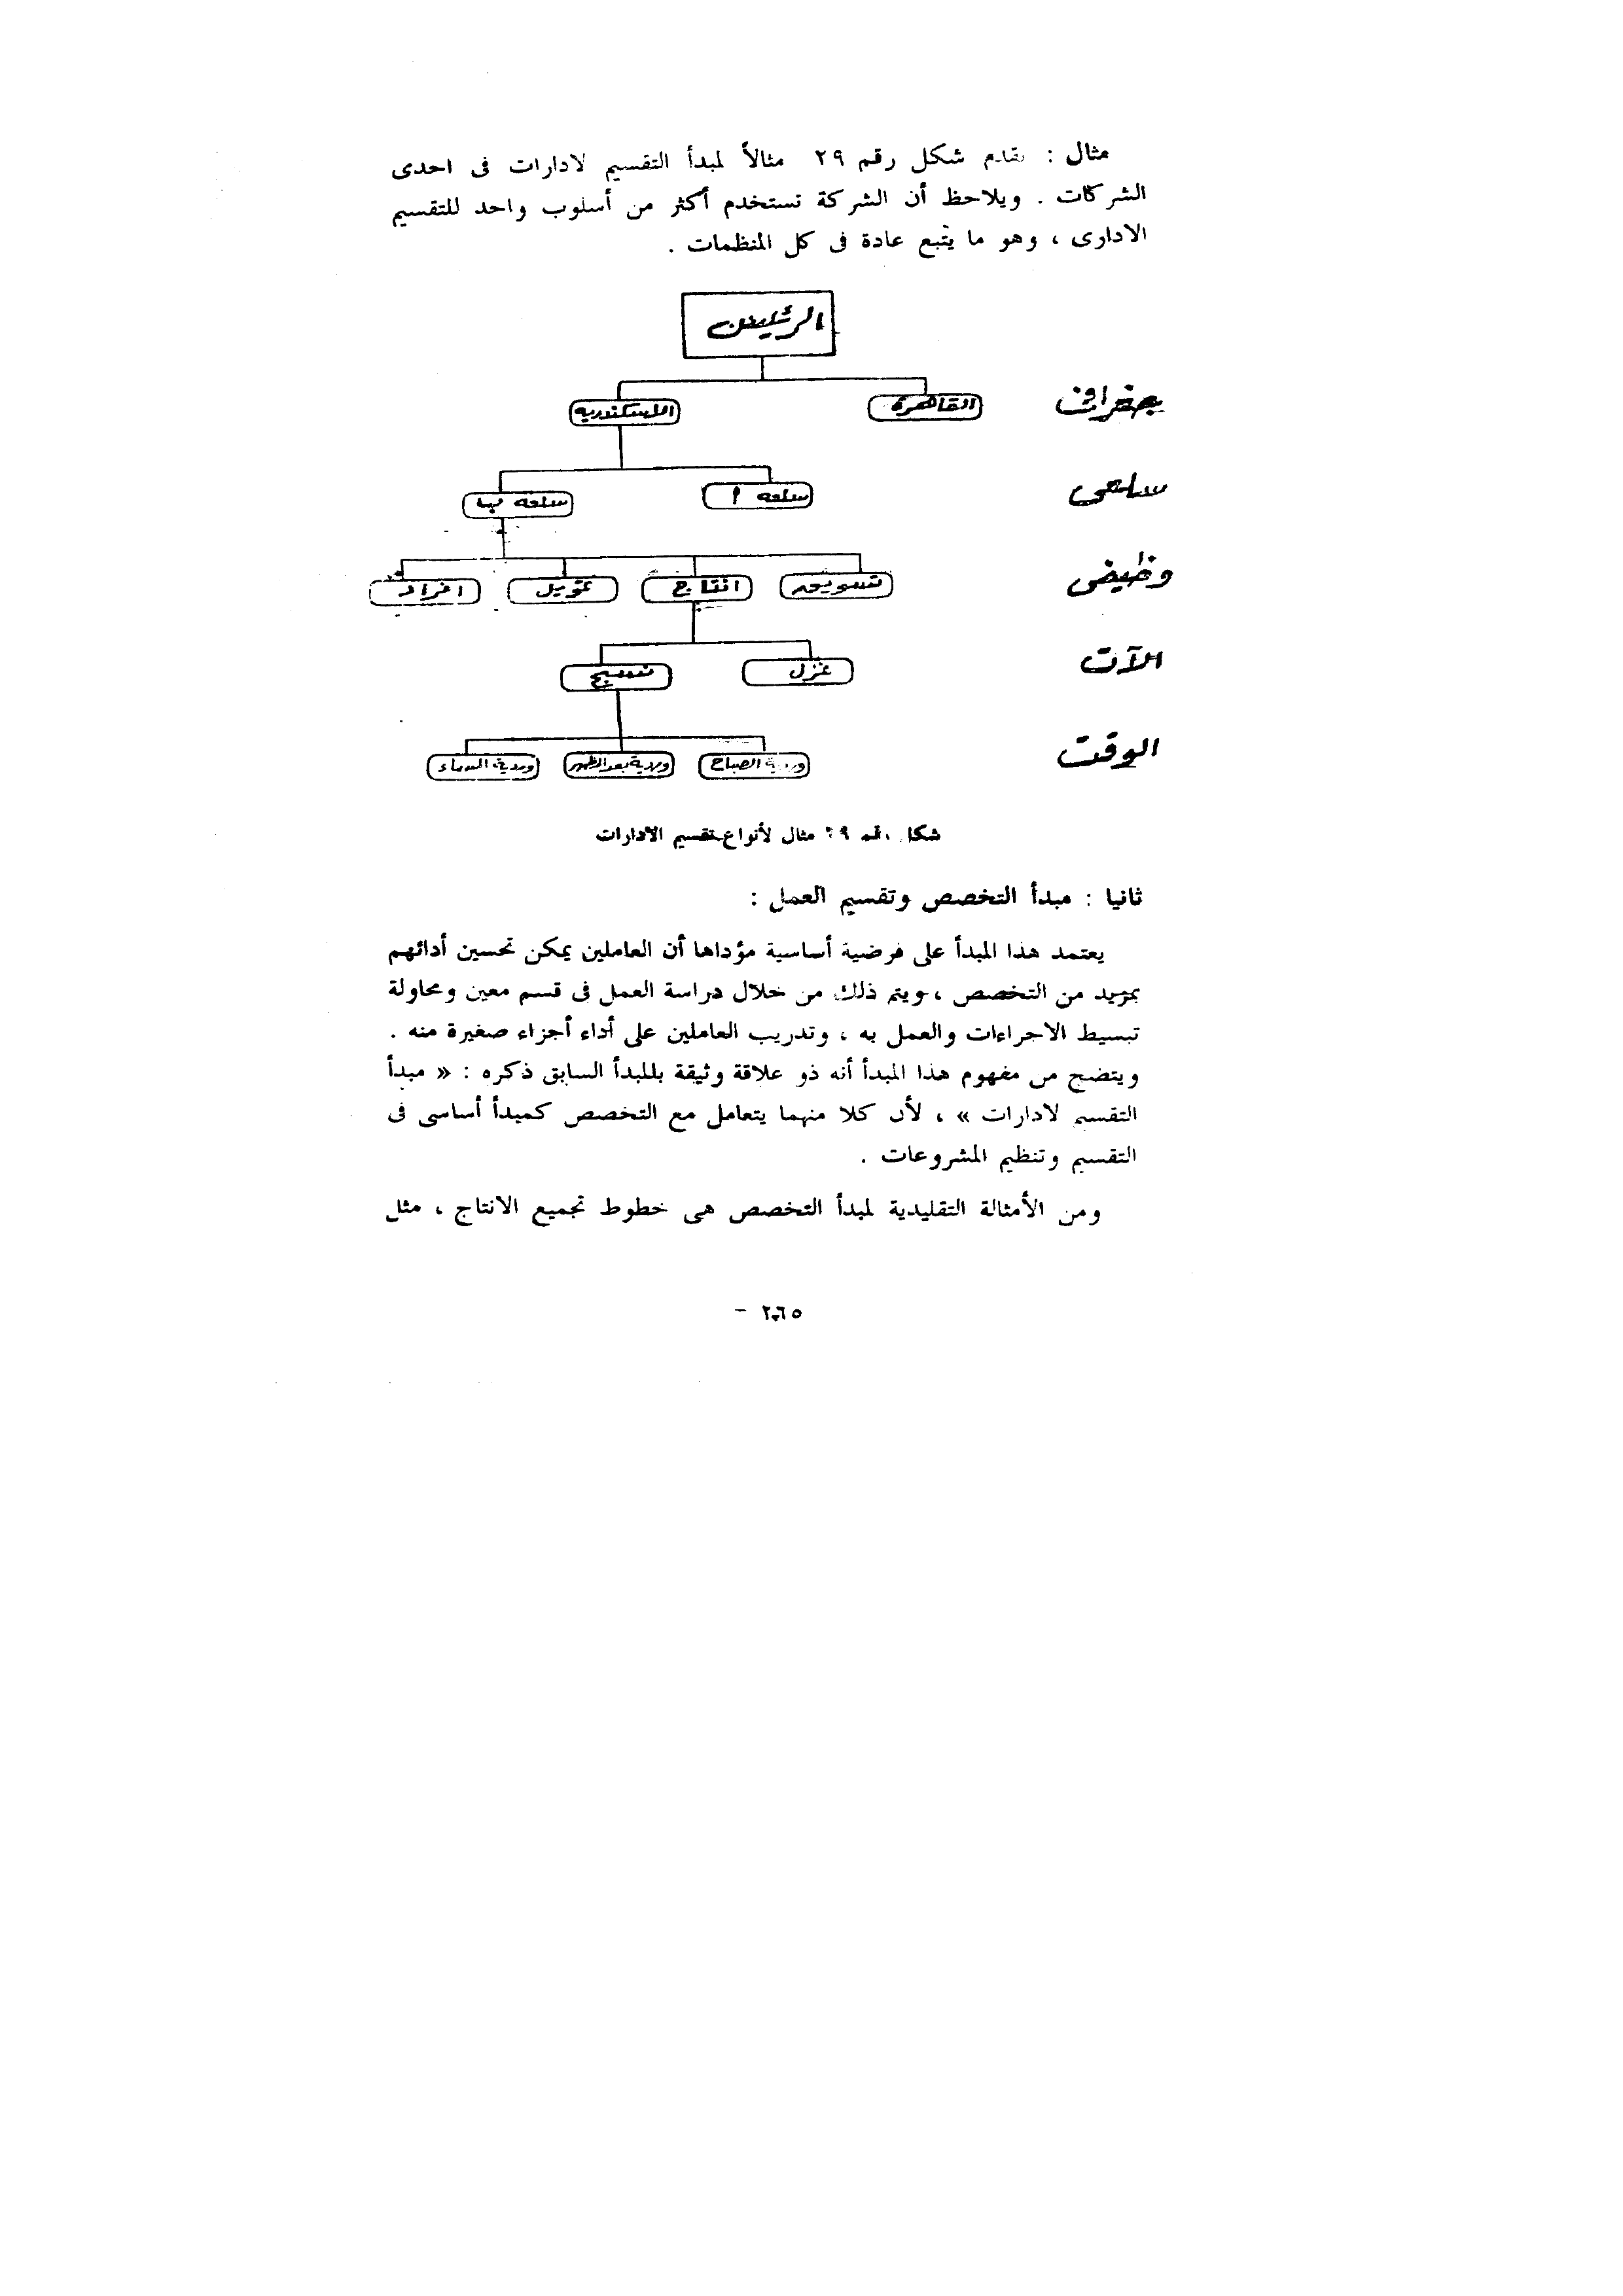 مثال : يقدم شكل رقم ٢٩ مثالاً لمبدأ التقسيم لادارات فى احدى
الشركات . ويلاحظ أن الشركة تستخدم أكثر من أسلوب واحد للتقسيم
الادارى ، وهو ما يتبع عادة فى كل المنظمات .
الرئيس
جغرافى القاهرة الاسكندريه
سلعى سلعه أ سلعه ب
وظيفى تسويق انتاج تمويل افراد
الآت غزل نسيج
الوقت وردية الصباح وردية بعد الظهر وردية المساء
شكل رقم ٢٩ مثال لأنواع تقسيم الادارات
ثانيا : مبدأ التخصص وتقسيم العمل :
يعتمد هذا المبدأ على فرضية أساسية مؤداها أن العاملين يمكن تحسين أدائهم
بمزيد من التخصص ، ويتم ذلك من خلال دراسة العمل فى قسم معين ومحاولة
تبسيط الاجراءات والعمل به ، وتدريب العاملين على أداء أجزاء صغيرة منه .
ويتضح من مفهوم هذا المبدأ أنه ذو علاقة وثيقة بللبدأ السابق ذكره : « مبدأ
التقسيم لادارات » ، لأن كلا منهما يتعامل مع التخصص كمبدأ أساسى فى
التقسيم وتنظيم المشروعات .
ومن الأمثالة التقليدية لمبدأ التخصص هى خطوط تجميع الانتاج ، مثل
٢٦٥ –